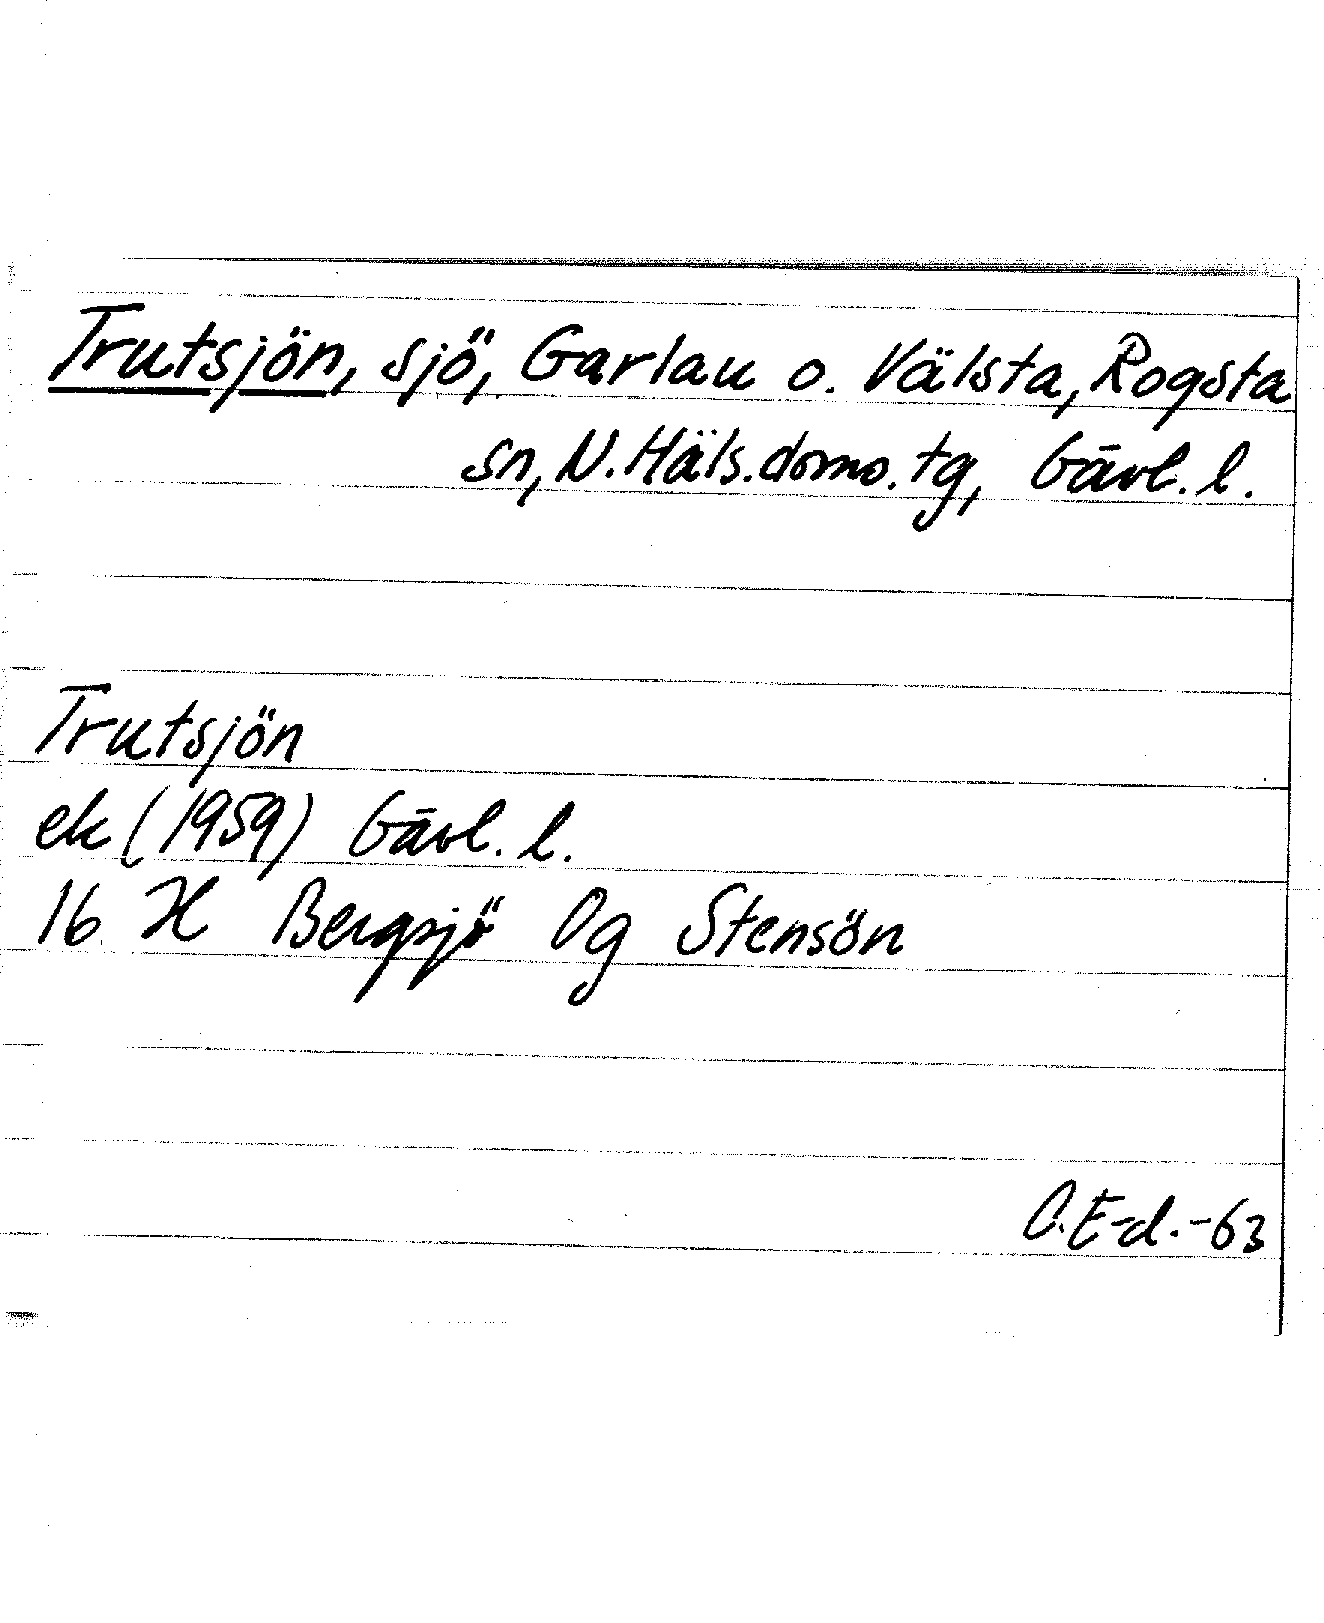 Trutsjön, sjö, Garlau o. Välsta, Rogsta
sn, N. Häls. doms. tg, Gävl. l.
Trutsjön
ek (1959) Gävl. l.
16 H Bergsjö Og Stensön
O.E-d.-63